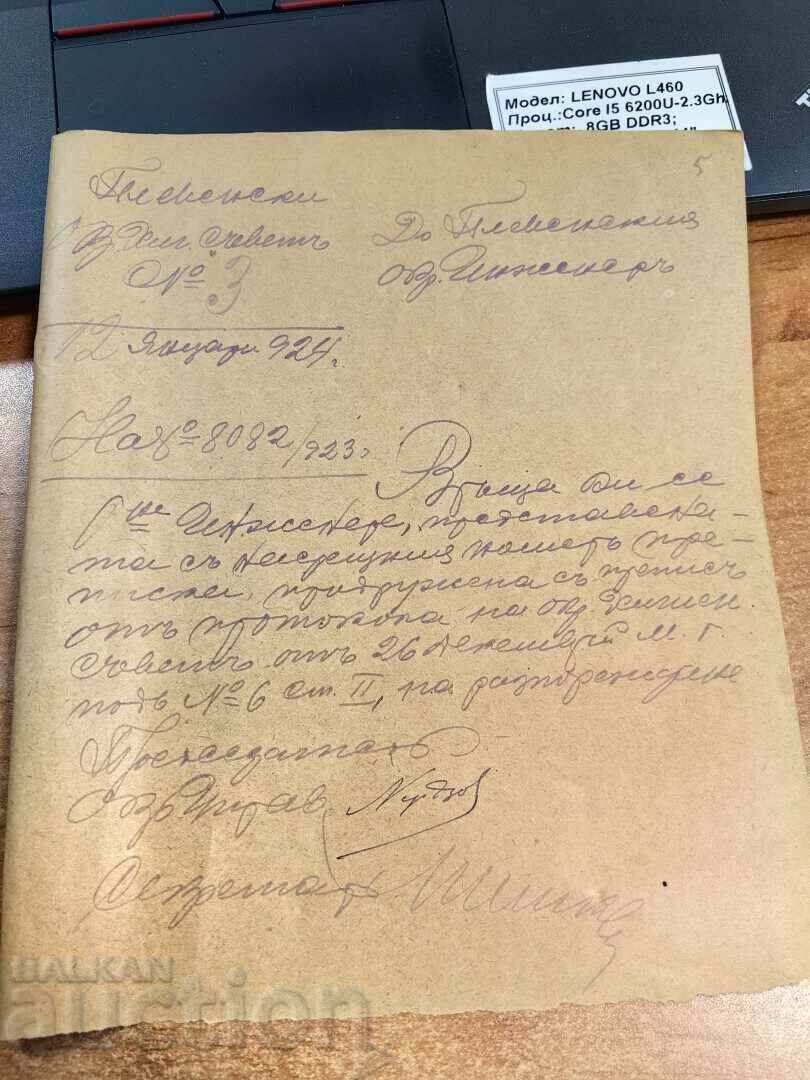 Модел: LENOVO L460
Проц.:Core I5 6200U-2.3Gh
8GB DDR3;
5
Плевенски
Окр. Хиг. Съветъ
№ 3
12 Януари 924 г.
До Плевенския
окр. Инженеръ
На № 8082/923 г.
Връща ви се
Г-не Инженере, представена-
та съ насрещния номеръ пре-
писка, придружена съ преписъ
отъ протокола на окр. Хигиен
Съветъ отъ 26 декемврий м. г.
подъ № 6 ст. II, на разпореждане
Председатель
Окр.
Секретарь
BALKAN
auction